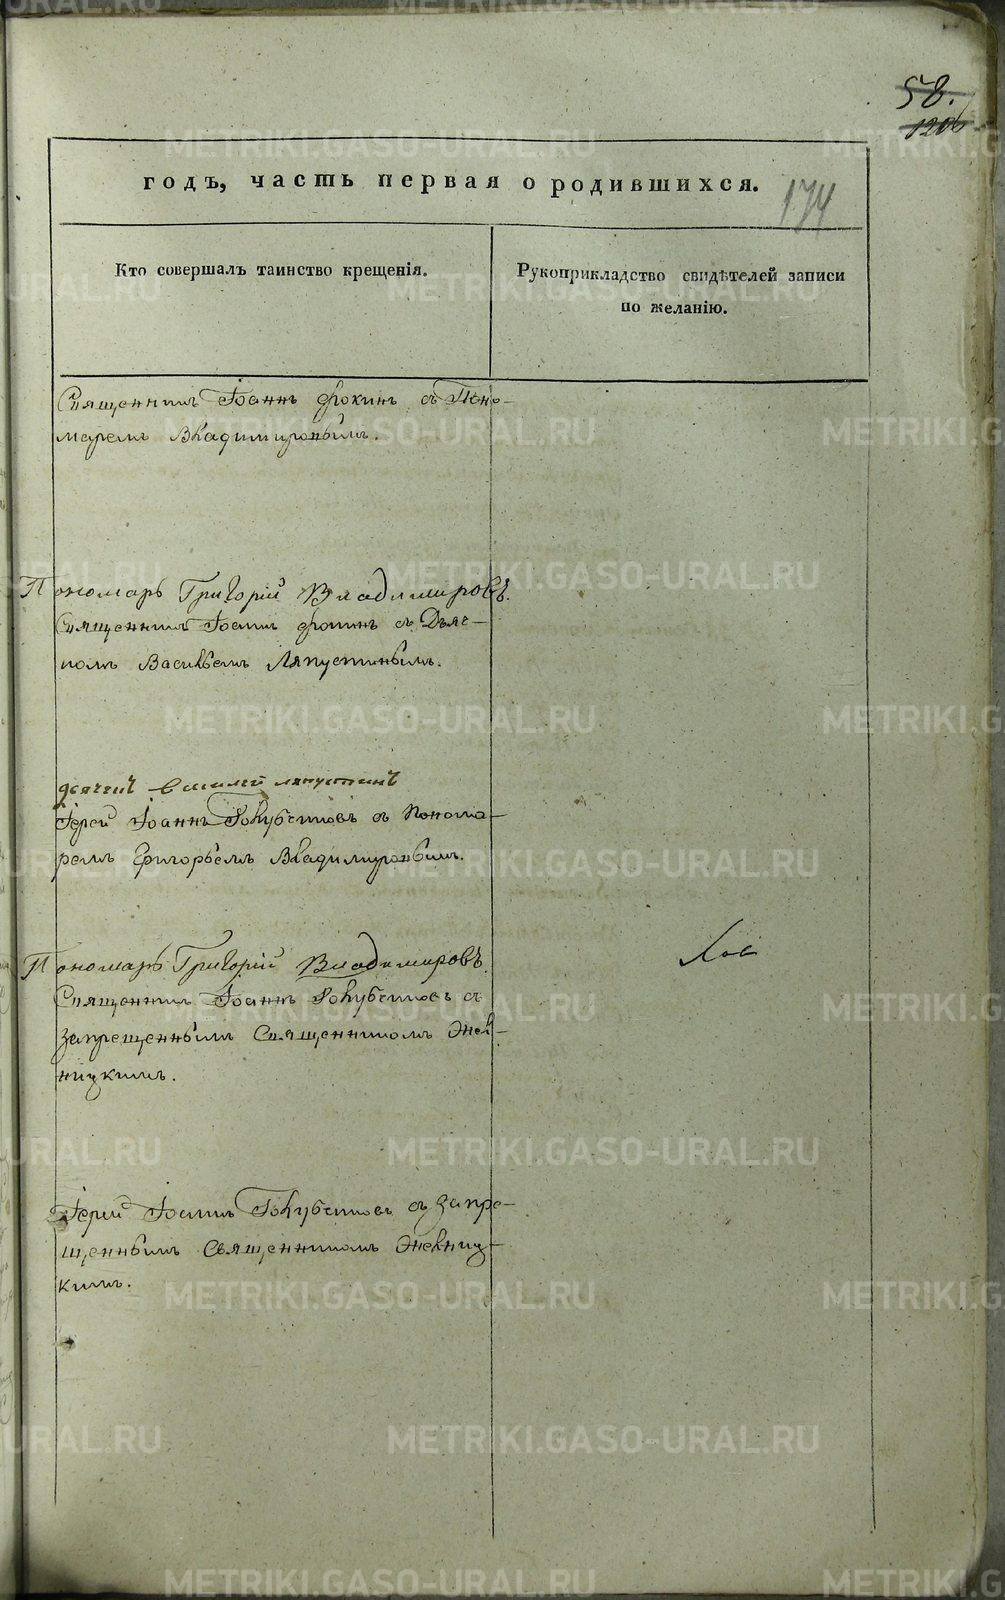 58.
1206
годъ, часть первая о родившихся.
174
Кто совершалъ таинство крещенія.
Рукоприкладство свидѣтелей записи
по желанію.
Священникъ Іоаннъ Фокинъ съ Поно-
маремъ Владимировымъ.
Пономарь Григорій Владимировъ.
Священникъ Іоаннъ Фокинъ съ Дьяч-
комъ Васильемъ Ляпустинымъ.
дьячекъ василей ляпустинъ
Іерей Іоаннъ Голубчиковъ съ Понома-
ремъ Григорьемъ Владимировымъ.
Пономарь Григорій Владимировъ.
Священникъ Іоаннъ Голубчиковъ съ
запрещеннымъ Священникомъ
ницкимъ.
Іерей Іоаннъ Голубчиковъ съ запре-
щеннымъ Священникомъ
кимъ.
METRIKI.GASO-URAL.RU